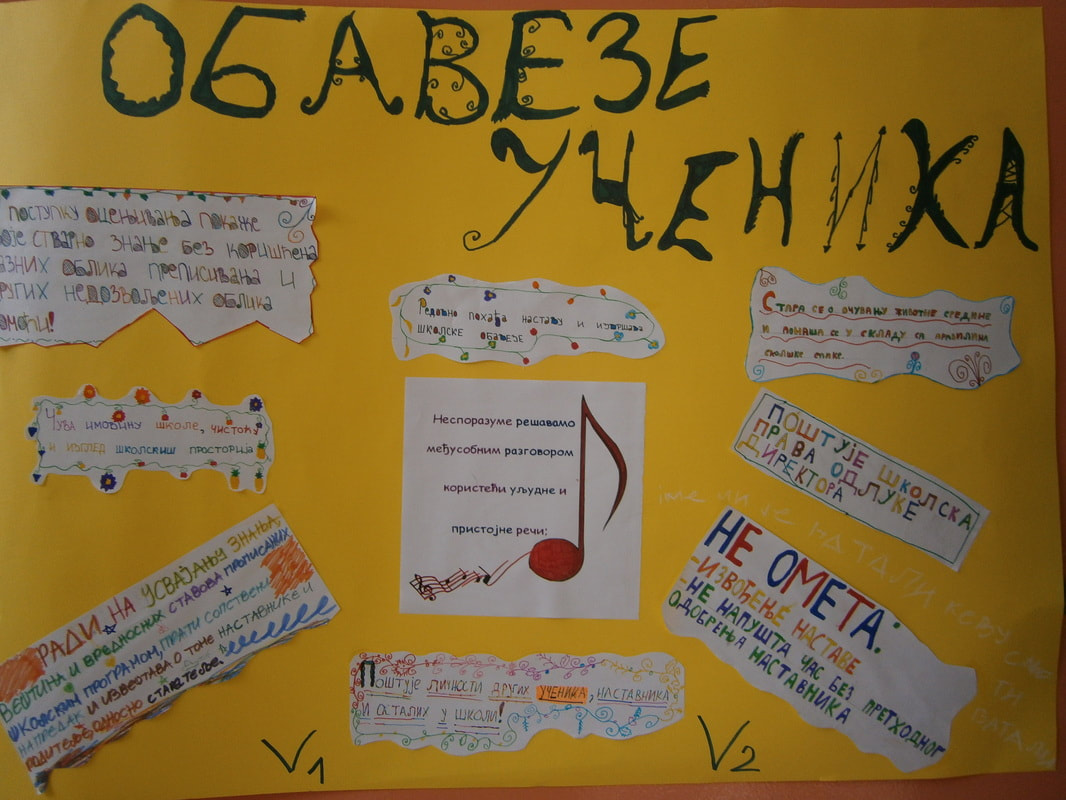 ОБАВЕЗЕ
УЧЕНИКА
поступку оцењивања покаже
стварно знање без коришћења
облика преписивања и
недозвољених облика
Редовно похађа наставу и извршава
школске обавезе
Стара се о очувању животне средине
и понаша се у складу са правилима
школске етике.
Чува имовину школе, чистоћу
и изглед школских просторија
Неспоразуме решавамо
међусобним разговором
користећи уљудне и
пристојне речи;
ПОШТУЈЕ ШКОЛСКА
ПРАВА ОДЛУКЕ
ДИРЕКТОРА
РАДИ НА УСВАЈАЊУ ЗНАЊА,
ВЕШТИНА И ВРЕДНОСНИХ СТАВОВА ПРОПИСАНИХ
ШКОЛСКИМ ПРОГРАМОМ, ПРАТИ СОПСТВЕНИ
НАПРЕДАК И ИЗВЕШТАВА О ТОМЕ НАСТАВНИКЕ И
РОДИТЕЉЕ, ОДНОСНО СТАРАТЕЉЕ.
НЕ ОМЕТА:
-ИЗВОЂЕЊЕ НАСТАВЕ
-НЕ НАПУШТА ЧАС БЕЗ ПРЕТХОДНОГ
ОДОБРЕЊА НАСТАВНИКА
Поштује личности других ученика, наставника
и осталих у школи!
V1
V2